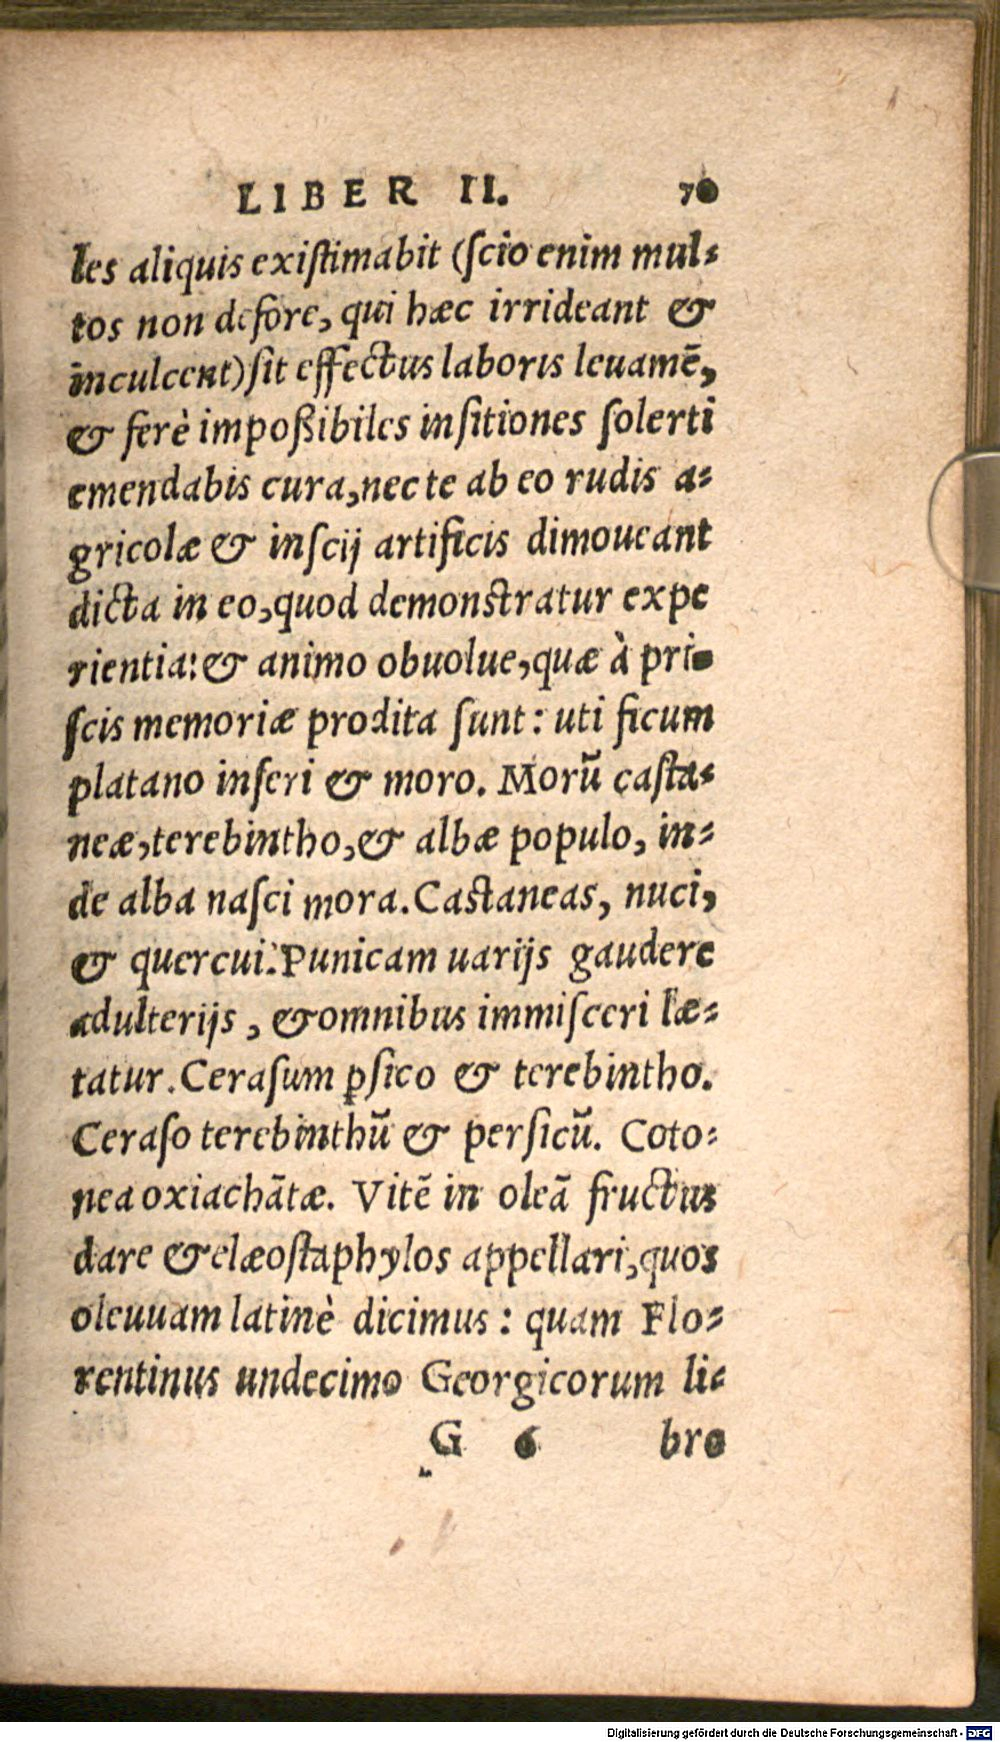 LIBER II. 70
les aliquis existimabit (scio enim mul-
tos non defore, qui hæc irrideant &
inculcent) sit effectus laboris leuamē,
& ferè impoßibiles insitiones solerti
emendabis cura, nec te ab eo rudis a-
gricolæ & inscij artificis dimoueant
dicta in eo, quod demonstratur expe
rientia: & animo obuolue, quæ à pri-
scis memoriæ prodita sunt: uti ficum
platano inseri & moro. Morū casta-
neæ, terebintho, & albæ populo, in-
de alba nasci mora. Castaneas, nuci,
& quercui. Punicam uarijs gaudere
adulterijs, & omnibus immisceri læ-
tatur. Cerasum ꝑsico & terebintho.
Ceraso terebinthū & persicū. Coto-
nea oxiachātæ. Vitē in oleā fructus
dare & elæostaphylos appellari, quos
oleuuam latinè dicimus: quam Flo-
rentinus undecimo Georgicorum li-
G 6 bro
Digitalisierung gefördert durch die Deutsche Forschungsgemeinschaft - DFG